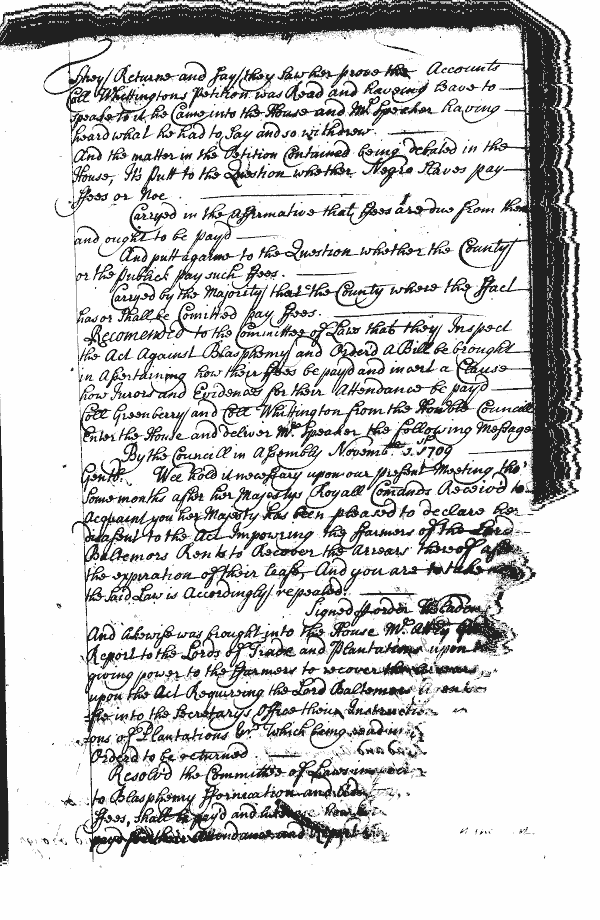 They Returne and Say they Saw her prove the Accounts
Coll Whittingtons Petition was Read and haveing Leave to
speake to it he Came into the House and Mr Speaker having
heard what he had to Say and so withdrew.
And the matter in the Petition Contained being debated in the
House, Its Putt to the Question whether Negro Slaves pay
ffees or Noe
Carryed in the Affirmative that ffees are due from them
and ought to be payd
And putt againe to the Question whether the County
or the publick pay such ffees.
Carryed by the Majority that the County where the ffact
has or Shall be Comitted pay ffees.
Recomended to the Committee of Laws that they Inspect
the Act Against Blasphemy and Orderd A Bill be brought
in Assertaining how their ffees be payd and insert a Clause
how Jurors and Evidences for their Attendance be payd
Coll Greenberry and Coll Whittington from the Honble Councill
Enter the House and deliver Mr Speaker the following Message
By the Councill in Assembly Novembr 3. 1709
Gentl. Wee hold it necessary upon our present Meeting tho'
Some months after her Majestys Royall Comands Receiv'd to
Acquaint you her Majesty has been pleased to declare her
disasent to the Act Impowring the ffarmers of the Lord
Baltemors Rents to Recover the Arrears thereof after
the expiration of their lease, And you are to take
the said Law is Accordingly repealed.
Signed p order
And likewise was brought into the House Mr
Report to the Lords of Trade and Plantations upon
giving power to the ffarmers to recover the arrears
upon the Act Requireing the Lord Baltemors
into the Secretarys Office their Instructions
ons of Plantations which being read
Orderd to be returned
Resolvd the Committee of Laws
to Blasphemy ffornication and
ffees, shall be payd and how
payd for their Attendance and Report